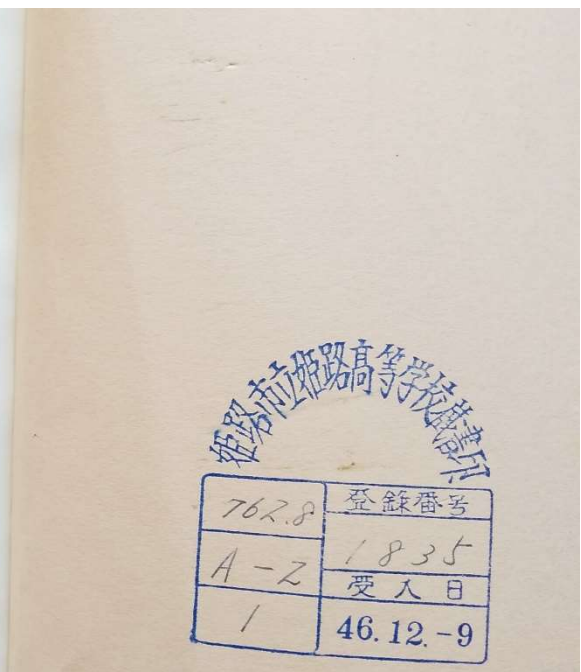 姫路市立姫路高等学校蔵書印
762.8
A-Z
1
登録番号
1835
受入日
46.12.-9